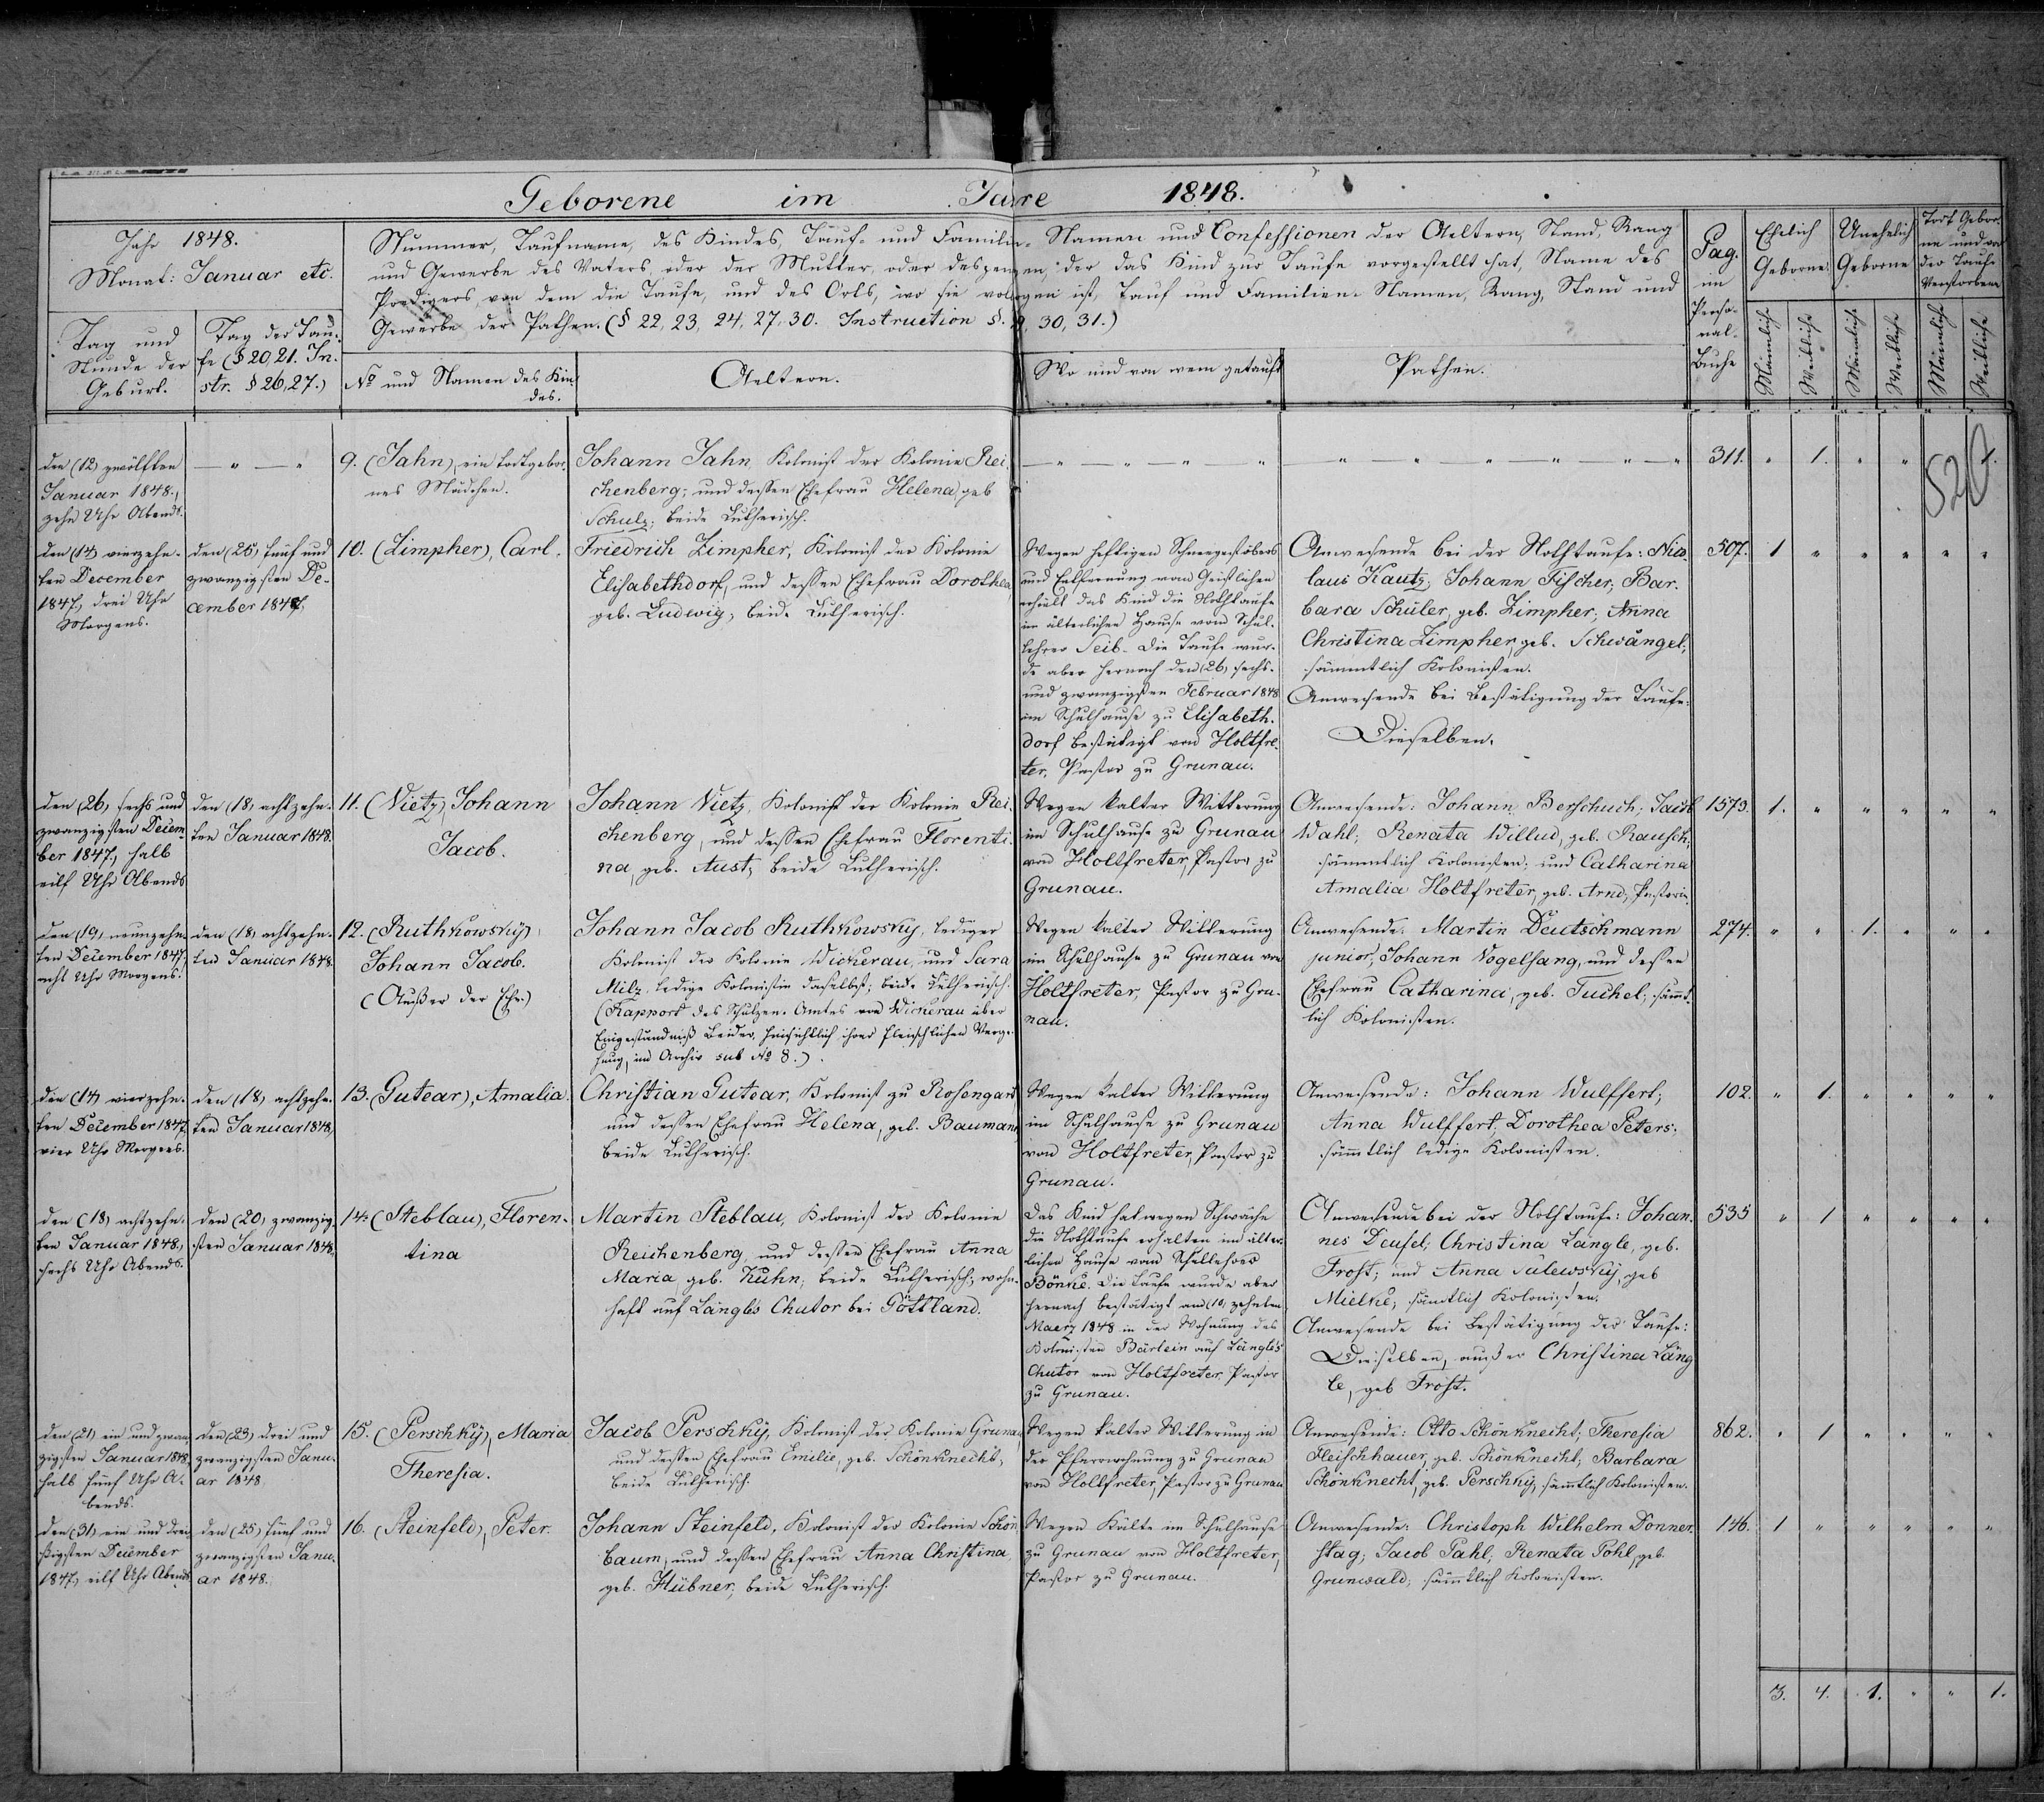 Geborene im Jare 1848.
Jahr 1848.
Monat: Januar etc.
Nummer, Taufname, des Kindes, Tauf- und Familien-Namen und Confessionen der Aeltern, Stand, Rang
und Gewerbe des Vaters, oder der Mutter, oder desjenigen, der das Kind zur Taufe vorgestellt hat, Name des
Predigers, von dem die Taufe, und des Orts, wo sie vollzogen ist, Tauf und Familien-Namen, Rang, Stand und
Gewerbe der Pathen. (§ 22, 23, 24, 27, 30. Instruction §. 30, 31.)
Tag und
Stunde der
Geburt.
Tag der Tau-
fe (§ 20, 21. In-
str. § 26, 27.)
No und Namen des Kin
des.
Aeltern.
Wo und von wem getauft
Pathen.
Pag.
im
Perso-
nal-
Buche
Ehelich
Geborne
Unehelich
Geborne
Todt Gebor-
ne und vor
der Taufe
Verstorbene
Männliche
Weibliche
Männliche
Weibliche
Männliche
Weibliche
den (12) zwölften
Januar 1848.,
zehn Uhr Abends.
— " — "
9. (Jahn), ein todtgebor-
nes Mädchen.
Johann Jahn, Kolonist der Kolonie Rei-
chenberg; und dessen Ehefrau Helena, geb
Schulz; beide Lutherisch.
— " — " — " "
— " — " — " — " — "
311. " 1. " " 1.
52
den (14) vierzehn-
ten December
1847, drei Uhr
Morgens.
den (25) fünf und
zwanzigsten De-
cember 1847.
10. (Zimpher), Carl.
Friedrich Zimpher, Kolonist der Kolonie
Elisabethdorf, und dessen Ehefrau Dorothea,
geb. Ludwig; beide Lutherisch.
Wegen heftigen Schneegestöbers
und Entfernung vom Geistlichen
erhielt das Kind die Nothtaufe
im älterlichen Hause vom Schul-
lehrer Seib. Die Taufe wur-
de aber hernach den (26) sechs-
und zwanzigsten Februar 1848
im Schulhause zu Elisabeth-
dorf bestätigt von Holtfre-
ter, Pastor zu Grunau.
Anwesende bei der Nothtaufe: Nico-
laus Kautz; Johann Fischer; Bar-
bara Schüler, geb. Zimpher; Anna
Christina Zimpher, geb. Schwängel;
sämmtlich Kolonisten.
Anwesende bei Bestätigung der Taufe:
Dieselben.
507. 1 " " " " "
den (26) sechs und
zwanzigsten Decem
ber 1847, halb
eilf Uhr Abends
den (18) achtzehn-
ten Januar 1848.
11. (Vietz), Johann
Jacob.
Johann Vietz, Kolonist der Kolonie Rei-
chenberg, und dessen Ehefrau Florenti-
na, geb. Aust; beide Lutherisch.
Wegen kalter Witterung
im Schulhause zu Grunau
von Holtfreter, Pastor zu
Grunau.
Anwesende: Johann Berschuch; Jacob
Wahl; Renata Willud, geb. Rausch;
sämmtlich Kolonisten; und Catharina
Amalia Holtfreter, geb. Arnd, Pastorin
1573. 1. " " " " "
den (19) neunzehn-
ten December 1847,
acht Uhr Morgens.
den (18) achtzehn-
ten Januar 1848.
12. (Ruthkowsky),
Johann Jacob.
(Außer der Ehe.)
Johann Jacob Ruthkowsky, lediger
Kolonist der Kolonie Wickerau, und Sara
Milz, ledige Kolonistin daselbst; beide Lutherisch.
(Rapport des Schulzen-Amtes von Wickerau über
Eingeständniß Beider, hinsichtlich ihrer fleischlichen Verge-
hung, im Archiv sub No 8.)
Wegen kalter Witterung
im Schulhause zu Grunau von
Holtfreter, Pastor zu Gru-
nau.
Anwesende: Martin Deutschmann
junior; Johann Vogelsang, und dessen
Ehefrau Catharina, geb. Tuchel; sämmt-
lich Kolonisten.
274. " " 1. " " "
den (14) vierzehn-
ten December 1847,
vier Uhr Morgens.
den (18) achtzehn-
ten Januar 1848.
13. (Gutear), Amalia.
Christian Gutear, Kolonist zu Rosengart
und dessen Ehefrau Helena, geb. Baumann
beide Lutherisch.
Wegen kalter Witterung
im Schulhause zu Grunau
von Holtfreter, Pastor zu
Grunau.
Anwesende: Johann Wulffert;
Anna Wulffert; Dorothea Peters;
sämtlich ledige Kolonisten.
102. " 1. " " " "
den (18) achtzehn-
ten Januar 1848.,
sechs Uhr Abends.
den (20) zwanzig-
sten Januar 1848.
14. (Steblau), Floren-
tina
Martin Steblau, Kolonist der Kolonie
Reichenberg, und dessen Ehefrau Anna
Maria, geb. Kuhn; beide Lutherisch; wohn-
haft auf Längle's Chutor bei Göttland.
Das Kind hat wegen Schwäche
die Nothtaufe erhalten im älter-
lichen Hause vom Schullehrer
Bönke. Die Taufe wurde aber
hernach bestätigt am (10) zehnten
Maerz 1848 in der Wohnung des
Kolonisten Bärlein auf Längle's
Chutor von Holtfreter, Pastor
zu Grunau.
Anwesende bei der Nothtaufe: Johan-
nes Deusel; Christina Längle, geb.
Frost; und Anna Salewsky, geb
Mielke; sämtlich Kolonisten.
Anwesende bei Bestätigung der Taufe:
Dieselben, außer Christina Läng
le, geb Frost.
535 " 1 " " " "
den (21) ein und zwan-
zigsten Januar 1848,
halb fünf Uhr A-
bends.
den (23) drei und
zwanzigsten Janu-
ar 1848.
15. (Perschky), Maria
Theresia.
Jacob Perschky, Kolonist der Kolonie Grunau
und dessen Ehefrau Emilie, geb. Schönknecht;
beide Lutherisch.
Wegen kalter Witterung in
der Pfarrwohnung zu Grunau
von Holtfreter, Pastor zu Grunau
Anwesende: Otto Schönknecht; Theresia
Fleischhauer, geb. Schönknecht; Barbara
Schönknecht, geb. Perschky; sämtlich Kolonisten.
862. " 1 " " " "
den (31) ein und drei-
ßigsten December
1847, eilf Uhr Abends
den (25) fünf und
zwanzigsten Janu-
ar 1848.
16. (Steinfeld), Peter.
Johann Steinfeld, Kolonist der Kolonie Schön
baum, und dessen Ehefrau Anna Christina,
geb. Hübner; beide Lutherisch.
Wegen Kälte im Schulhause
zu Grunau von Holtfreter,
Pastor zu Grunau.
Anwesende: Christoph Wilhelm Donner-
stag; Jacob Pahl; Renata Pohl, geb.
Grunwald; sämtlich Kolonisten.
146. 1 " " " " "
3. 4. 1. " " 1.